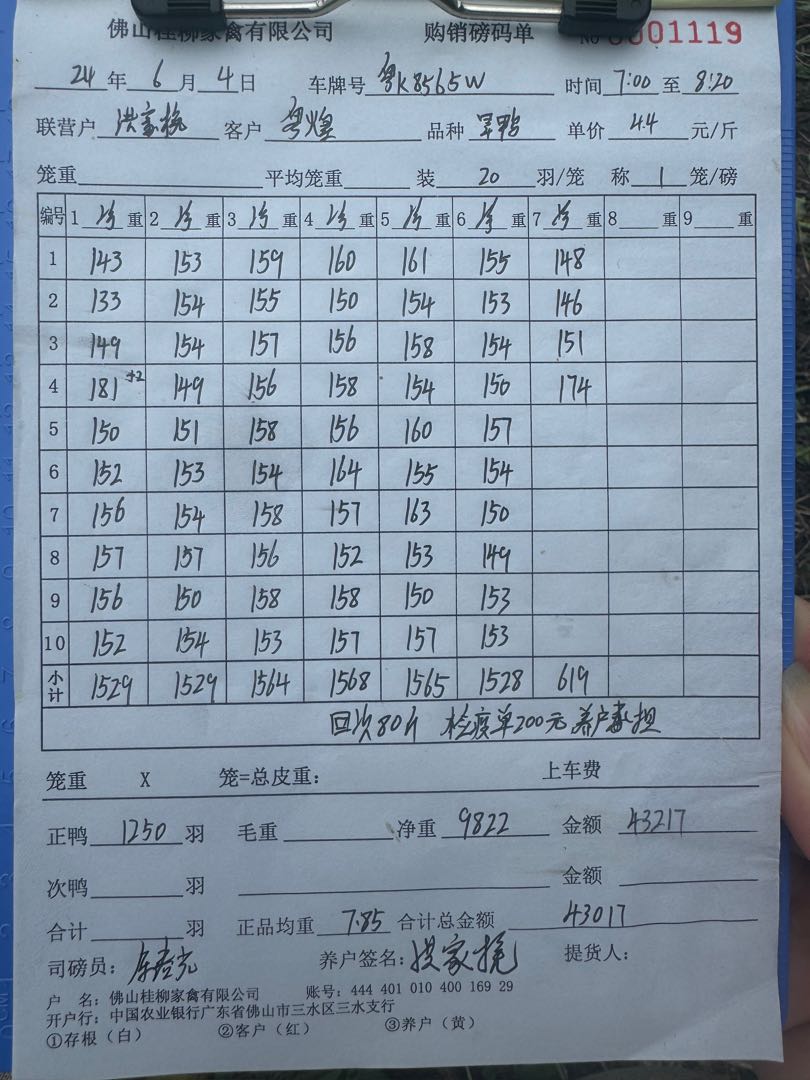 佛山桂柳家禽有限公司 购销磅码单 No 0001119
24年6月4日 车牌号粤K8565W 时间7:00至8:20
联营户 洪家挽 客户 粤煌 品种 旱鸭 单价 4.4 元/斤
笼重 平均笼重 装 20 羽/笼 称 1 笼/磅
编号 1 净 重 2 净 重 3 净 重 4 净 重 5 净 重 6 净 重 7 净 重 8 重 9 重
1 143 153 159 160 161 155 148
2 133 154 155 150 154 153 146
3 149 154 157 156 158 154 151
4 181+2 149 156 158 154 150 174
5 150 151 158 156 160 157
6 152 153 154 164 155 154
7 156 154 158 157 163 150
8 157 157 156 152 153 149
9 156 150 158 158 150 153
10 152 154 153 157 157 153
小计 1529 1529 1564 1568 1565 1528 619
回次80斤 检疫单200元 养户承担
笼重 X 笼=总皮重: 上车费
正鸭 1250 羽 毛重 净重 9822 金额 43217
次鸭 羽 金额
合计 羽 正品均重 7.85 合计总金额 43017
司磅员: 养户签名: 洪家挽 提货人:
户 名: 佛山桂柳家禽有限公司 账号: 444 401 010 400 169 29
开户行: 中国农业银行广东省佛山市三水区三水支行
①存根(白) ②客户(红) ③养户(黄)